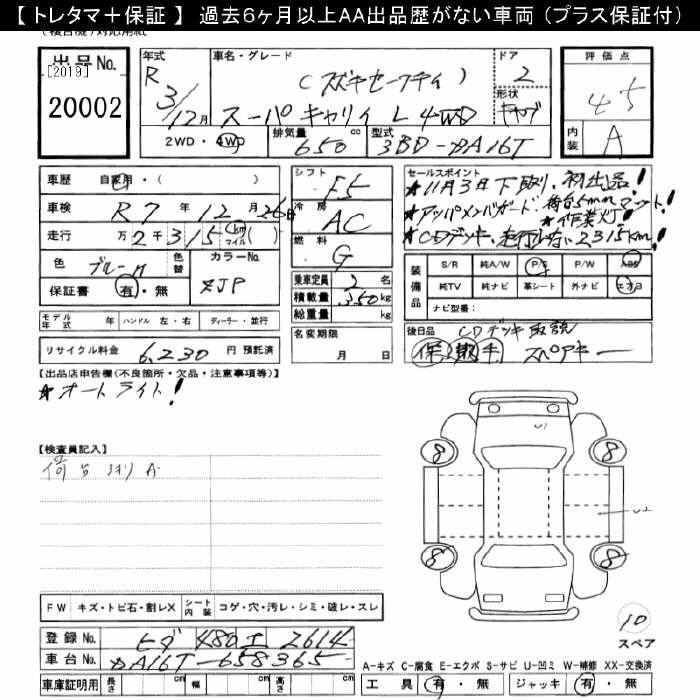 【 トレタマ＋保証 】 過去6ヶ月以上AA出品歴がない車両（プラス保証付）
出品No.
[2019]
20002
年式
R 3/12月
車名・グレード
(スズキセーフティ)
スーパーキャリィ L 4WD
ドア
2
形状
キャブ
評価点
4.5
内装
A
2WD・4WD
排気量
650 cc
型式
3BD-DA16T
車歴
自家用・(　)
車検
R 7 年 12 月 26日
走行
万 2 千 315 km マイル(　)
色
ブルーM
色替
カラーNo.
ZJP
保証書
有・無
シフト
F5
冷房
AC
燃料
G
乗車定員 2 名
積載量 350 kg
総重量 kg
セールスポイント
★11月3日下取り、初出品!
★アッパメンバガード、荷台5mmマット!
★作業灯!
★CDデッキ、走行少ない2315km!
装備品
S/R 純A/W P/S P/W ABS
純TV 純ナビ 革シート 外ナビ エアB
ナビ型番:
モデル年式 年 ハンドル 左・右 ディーラー・並行
リサイクル料金 6,230 円 預託済
名変期限
月 日
後日品 CDデッキ取説
保 取 手 スペアキー
【出品店申告欄(不良箇所・欠品・注意事項等)】
★オートライト!
【検査員記入】
荷台ヨゴリA
U1
8 8
U2
8 8
10
スペア
FW キズ・トビ石・割レX シート内装 コゲ・穴・汚レ・シミ・破レ・スレ
登録No. ヒダ 480 エ 2614
車台No. DA16T-658365
車庫証明用 長さ cm 幅 cm 高さ cm
A-キズ C-腐食 E-エクボ S-サビ U-凹ミ W-補修 XX-交換済
工具 有・無 ジャッキ 有・無